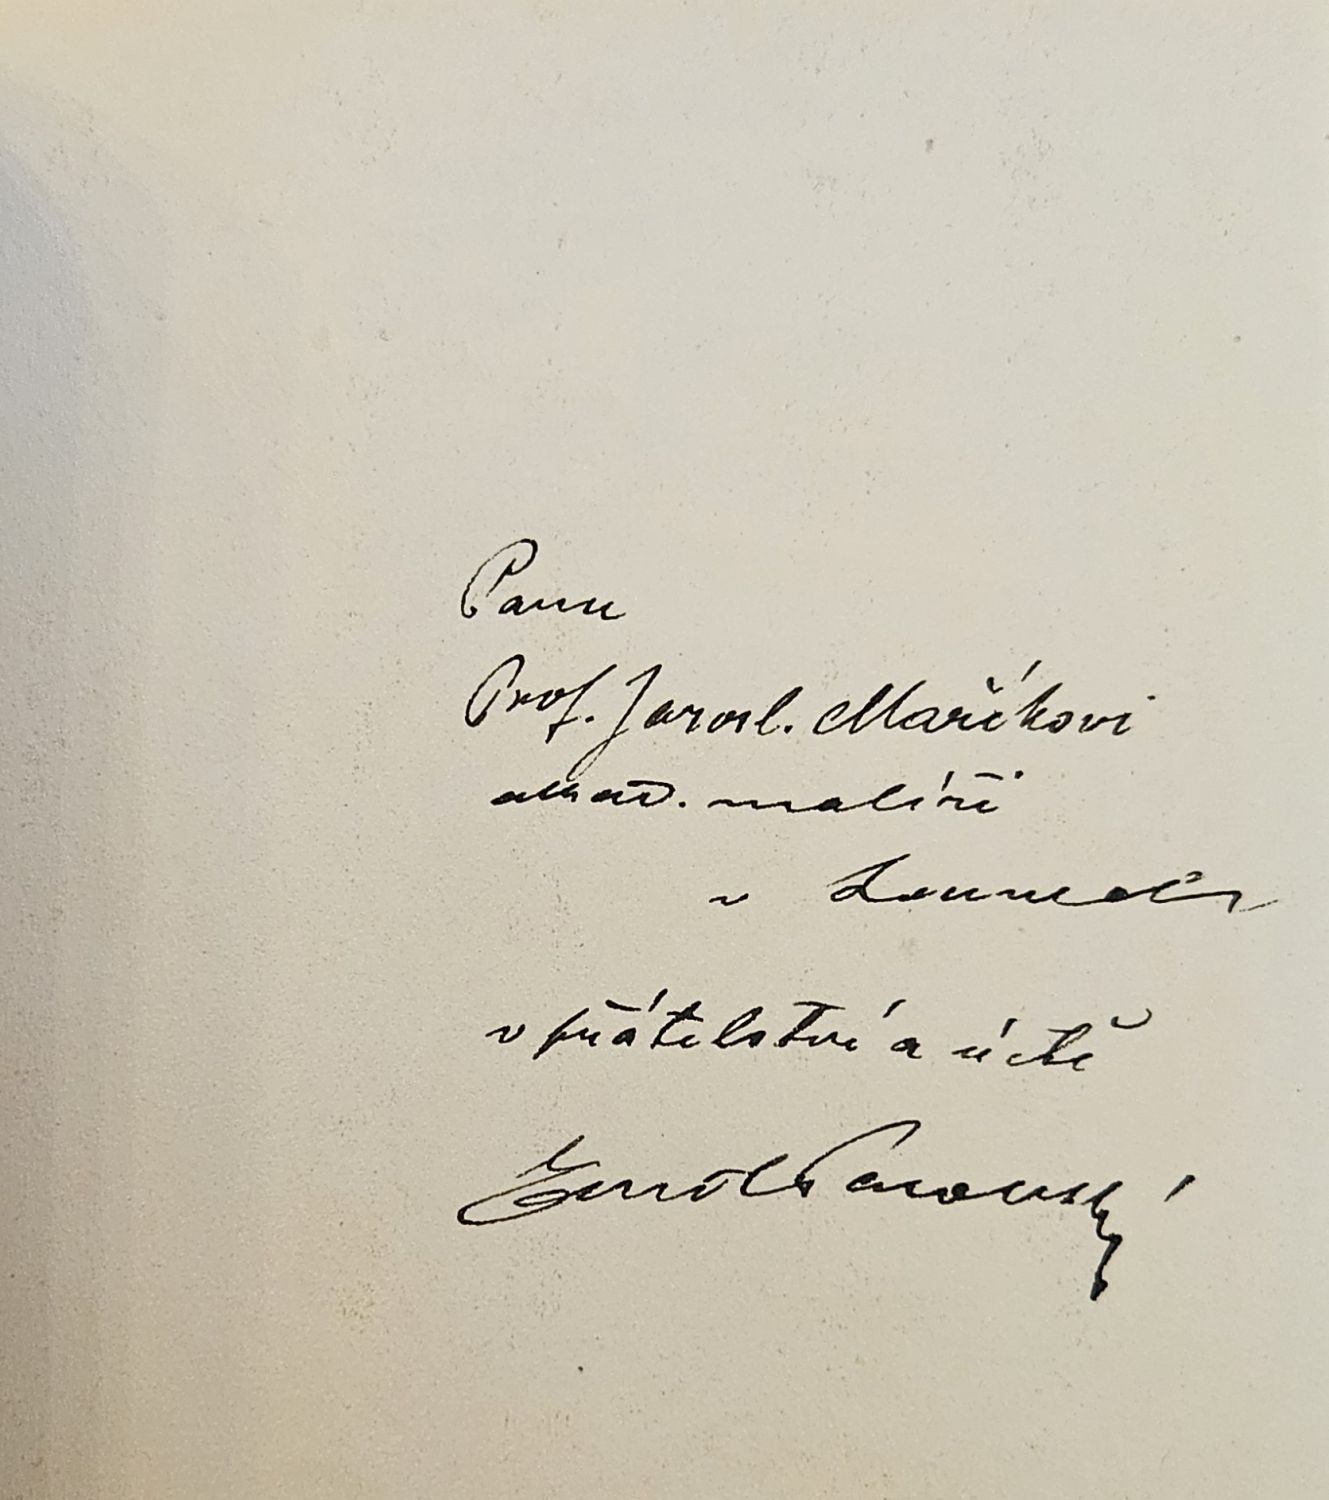 Panu
Prof. Jarosl. Maříkovi
akad. malíři
v Lounech
v přátelství a úctě
Emil